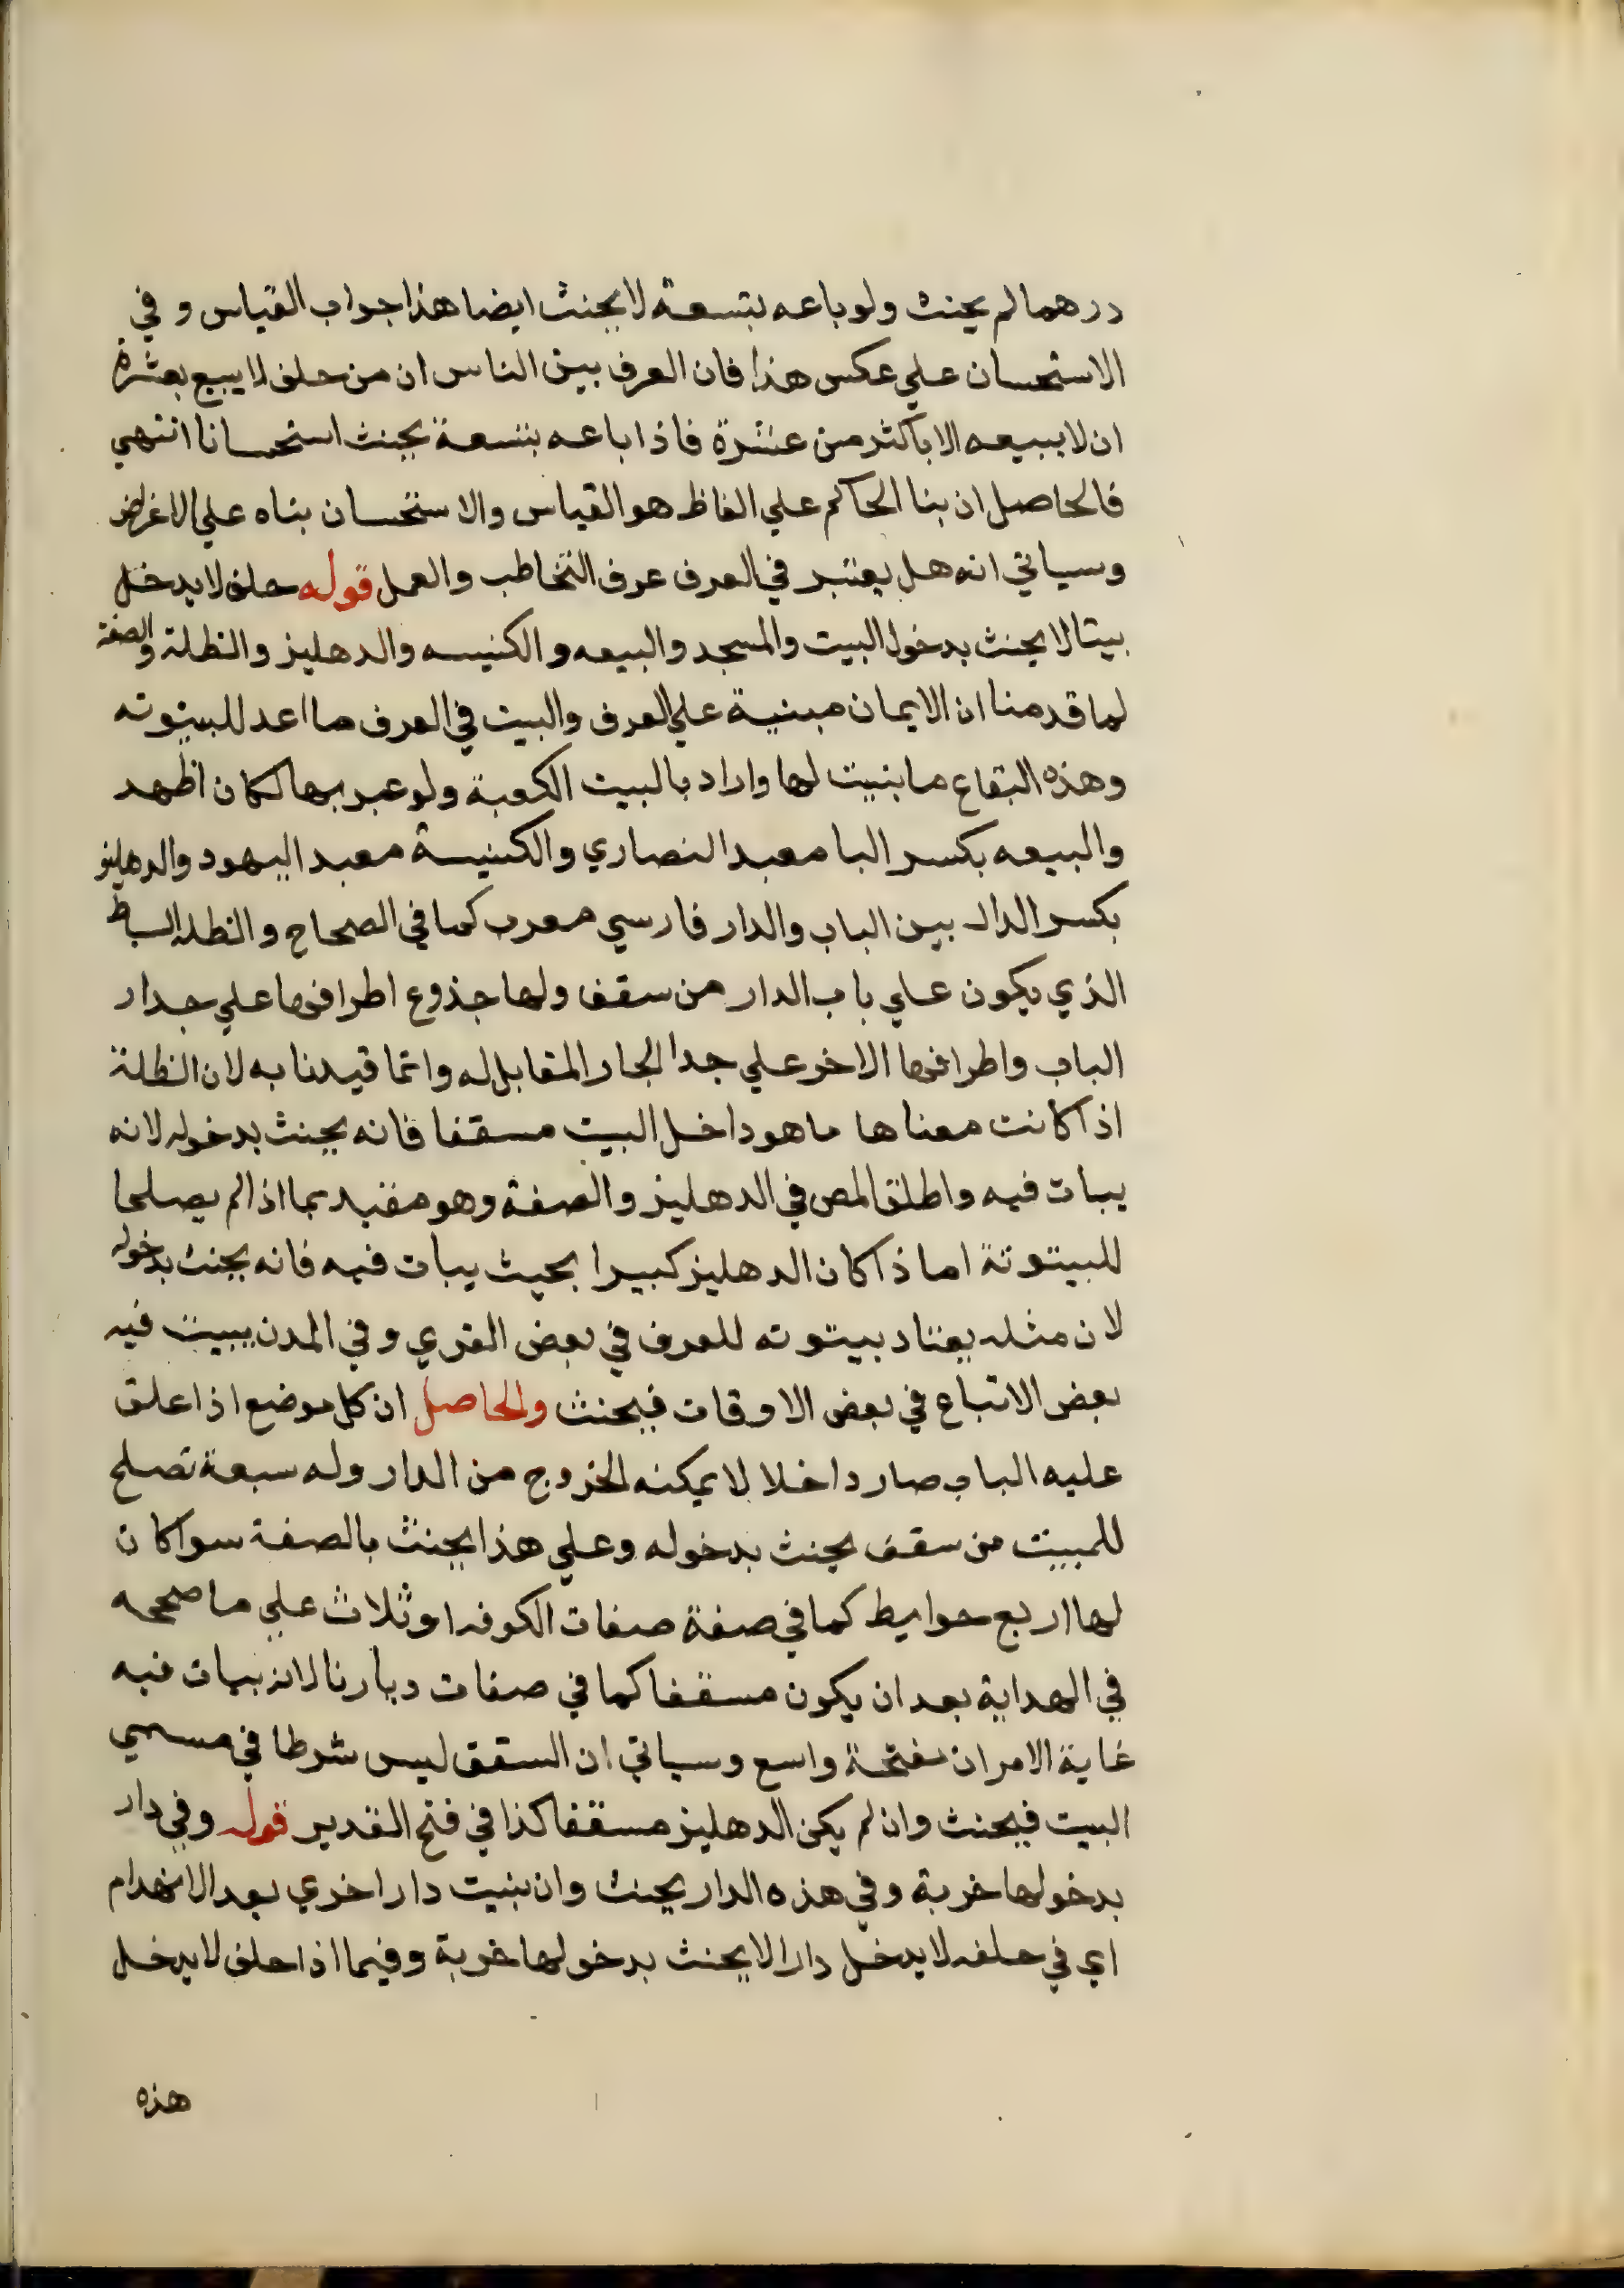 درهما لم يحنث ولو باعه بتسعة لا يحنث ايضا هذا جواب القياس وفي
الاستحسان علي عكس هذا فان العرف بين الناس ان من حلف لا يبيع بعشرة
ان لا يبيعه الا باكثر من عشرة فاذا باعه بتسعة يحنث استحسانا انتهي
فالحاصل ان بنا الحاكم علي الفاظ هو القياس والاستحسان بناه علي الاغراض
وسياتي انه هل يعتبر في العرف عرف التخاطب والعمل قوله حلف لا يدخل
بيتا لا يحنث بدخول البيت والمسجد والبيعه والكنيسه والدهليز والظلة والصفة
لما قدمنا ان الايمان مبنية علي العرف والبيت في العرف ما اعد للبيتوته
وهذه البقاع ما بنيت لها واراد بالبيت الكعبة ولو عبر بها لكان اظهر
والبيعه بكسر البا معبد النصاري والكنيسة معبد اليهود والدهليز
بكسر الدال بين الباب والدار فارسي معرب كما في الصحاح والظله الساباط
الذي يكون علي باب الدار من سقف ولها جذوع اطرافها علي جدار
الباب واطرافها الاخر علي جدا الجار المقابل له وانما قيدنا به لان الظلة
اذا كانت معناها ما هو داخل البيت مسقفا فانه يحنث بدخوله لانه
يبات فيه واطلق المص في الدهليز والصفة وهو مقيد بما اذا لم يصلحا
للبيتوتة اما ذا كان الدهليز كبيرا بحيث يبات فيه فانه يحنث بدخوله
لان مثله يعتاد بيتوته للعرف في بعض القري وفي المدن يبيت فيه
بعض الاتباع في بعض الاوقات فيحنث والحاصل ان كل موضع اذا علق
عليه الباب صار داخلا لا يمكنه الخروج من الدار وله سبعة تصلح
للمبيت من سقف يحنث بدخوله وعلي هذا يحنث بالصفة سوا كان
لها اربع حوايط كما في صفة صفات الكوفه او ثلاث علي ما صححه
في الهداية بعد ان يكون مسقفا كما في صفات ديارنا لانه يبات فيه
غاية الامر ان مفتحة واسع وسياتي ان السقق ليس شرطا في مسمي
البيت فيحنث وان لم يكن الدهليز مسقفا كذا في فتح القدير قوله وفي دار
بدخولها خربة وفي هذه الدار يحنث وان بنيت دارا اخري بعد الانهدام
اي في حلفه لا يدخل دارا لا يحنث بدخولها خربة وفيما اذا حلف لا يدخل
هذه